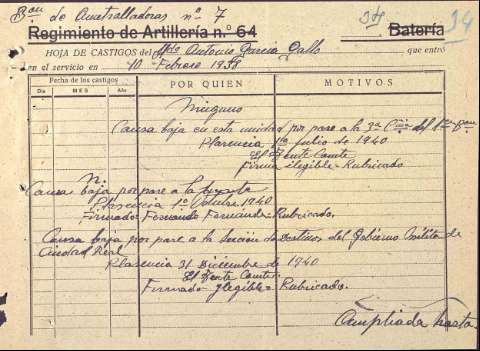 Bon de Ametralladoras nº 7 34
Regimiento de Artillería n.º 64 Batería 34
HOJA DE CASTIGOS del Sdo Antonio Garcia Gallo que entró
en el servicio en 10 Febrero 1938
Fecha de los castigos POR QUIEN MOTIVOS
Día MES Año
Ninguno
Causa baja en esta unidad por pase a la 2ª Cñia del 1er Bon
Plasencia 1º Julio de 1940
El Tente Comte
Firma elegible = Rubricado
Causa baja por pase a la
Plasencia 1º Octubre 1940
Firmado = Fernando Fernandez = Rubricado.
Causa baja por pase a la Seccion de destinos del Gobierno Militar de
Ciudad Real
Plasencia 31 Diciembre de 1940
El Tente Comte
Firmado = Ylegible = Rubricado.
Ampliada hasta